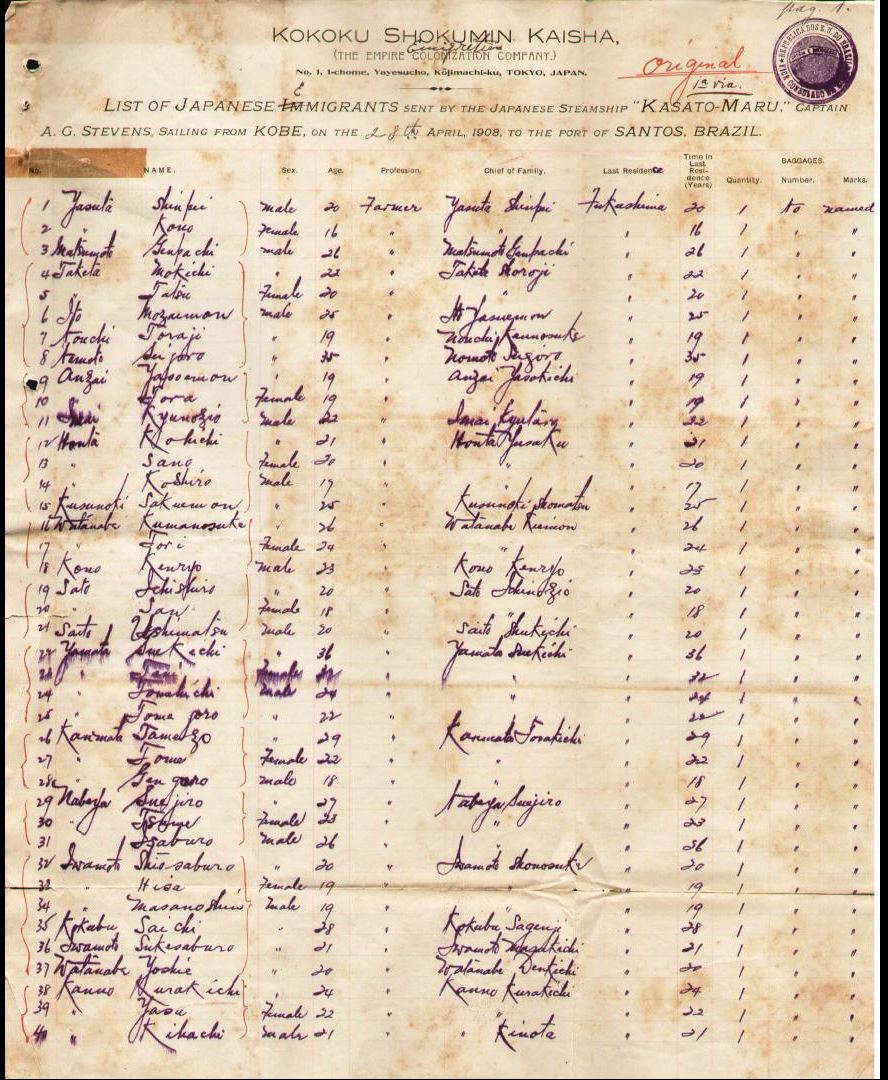 pag. 1.
KOKOKU SHOKUMIN KAISHA,
Emigration
(THE EMPIRE COLONIZATION COMPANY.)
No. 1, 1-chome, Yayesucho, Kōjimachi-ku, TOKYO, JAPAN.
Original
1ª via.
LIST OF JAPANESE EMMIGRANTS SENT BY THE JAPANESE STEAMSHIP "KASATO-MARU." CAPTAIN
A. G. STEVENS, SAILING FROM KOBE, ON THE 28th APRIL, 1908, TO THE PORT OF SANTOS, BRAZIL.
No. NAME. Sex. Age. Profession. Chief of Family. Last Residence Time in Last Residence (Years) BAGGAGES. Quantity. Number. Marks.
1 Yasuta Shinpei male 20 Farmer Yasuta Shinpei Fukushima 20 1 to named
2 " Kono Female 16 " " " 16 1 " "
3 Matsumoto Genpachi male 26 " Matsumoto Genpachi " 26 1 " "
4 Taketa Mokichi " 22 " Taketa " 22 1 " "
5 " Tatsu Female 20 " " " 20 1 " "
6 Ito Mozaimon male 25 " Ito Yasuemon " 25 1 " "
7 Nouchi Toraji " 19 " Nouchi Kannosuke " 19 1 " "
8 " 35 " Nomoto Sugoro " 35 1 " "
9 Anzai Yasoemon " 19 " Anzai Yasokichi " 19 1 " "
10 " Tora Female 19 " " " 19 1 " "
11 Imai male 22 " Imai " 22 1 " "
12 Honta Kiokichi " 21 " Honta Yusaku " 21 1 " "
13 " Sano Female 20 " " " 20 1 " "
14 " Koshiro male 17 " " " 17 1 " "
15 Kusunoki Sakuemon " 25 " Kusunoki Shomatsu " 25 1 " "
16 Watanabe Kumanosuke " 26 " Watanabe " 26 1 " "
17 " Tori Female 24 " " " 24 1 " "
18 Kono Kenryo male 23 " Kono Kenryo " 23 1 " "
19 Sato " 20 " Sato " 20 1 " "
20 " San Female 18 " " " 18 1 " "
21 Saito Yoshimatsu male 20 " Saito Shukichi " 20 1 " "
22 Yamata Suekichi " 36 " Yamata Suekichi " 36 1 " "
23 " Female 32 " " " 32 1 " "
24 " Tomekichi male 24 " " " 24 1 " "
25 " Tome goro " 22 " " " 22 1 " "
26 Kanmata " 29 " Kanmata Torakichi " 29 1 " "
27 " Tome Female 22 " " " 22 1 " "
28 " Gengoro male 18 " " " 18 1 " "
29 Nabeya Suejiro " 27 " Nabeya Suejiro " 27 1 " "
30 " Tsume Female 23 " " " 23 1 " "
31 " Isaburo male 26 " " 26 1 " "
32 Iwamoto Shiosaburo " 20 " Iwamoto Shonosuke " 20 1 " "
33 " Hisa Female 19 " " " 19 1 " "
34 " Masanoshin male 19 " " " 19 1 " "
35 Kokubu Saichi " 28 " Kokubu Sagenji " 28 1 " "
36 Iwamoto Sukesaburo " 21 " Iwamoto Magokichi " 21 1 " "
37 Watanabe Yoshie " 20 " Watanabe Denkichi " 20 1 " "
38 Kanno Kurakichi " 24 " Kanno Kurakichi " 24 1 " "
39 " Yasu Female 22 " " " 22 1 " "
40 " Kihachi male 21 " " Kinota " 21 1 " "